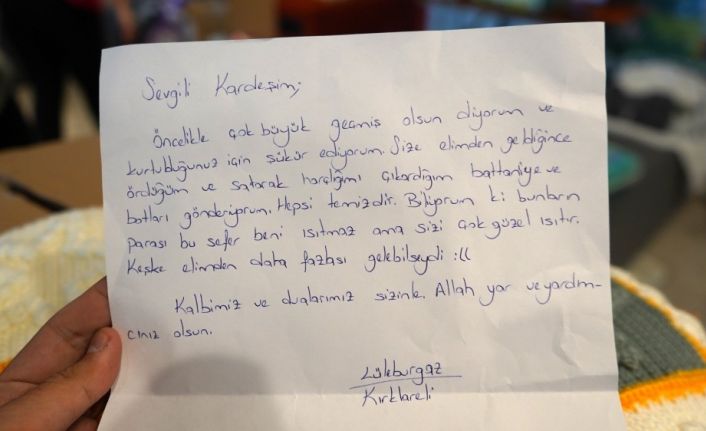 Sevgili Kardeşim;
Öncelikle çok büyük geçmiş olsun diyorum ve
kurtulduğunuz için şükür ediyorum. Size elimden geldiğince
ördüğüm ve satarak harçlığımı çıkardığım battaniye ve
botları gönderiyorum. Hepsi temizdir. Biliyorum ki bunların
parası bu sefer beni ısıtmaz ama sizi çok güzel ısıtır.
Keşke elimden daha fazlası gelebilseydi :((
Kalbimiz ve dualarımız sizinle. Allah yar ve yardım-
cınız olsun.
Lüleburgaz
Kırklareli